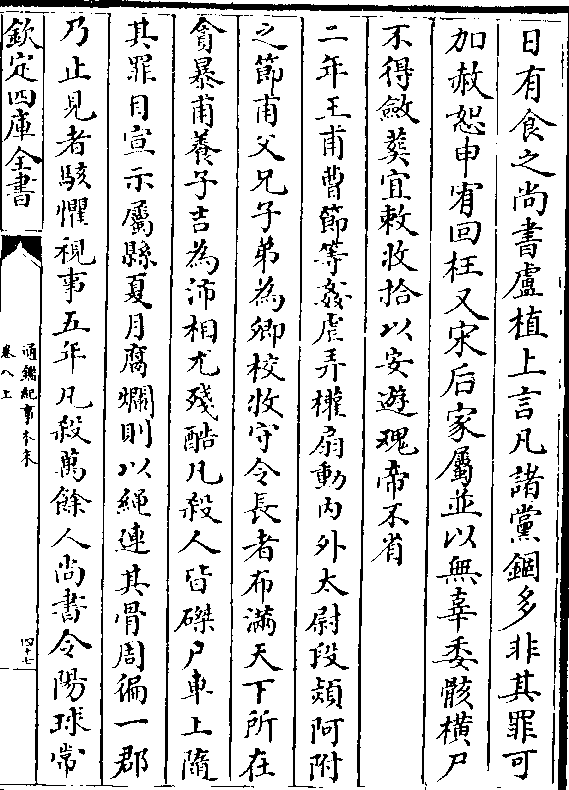 日有食之尚書盧植上言凡諸黨錮多非其罪可
加赦恕申宥回枉又宋后家屬並以無辜委骸橫尸
不得斂葬宜敕收拾以安遊魂帝不省
二年王甫曹節等姦虐弄權扇動內外太尉段熲阿附
之節甫父兄子弟為卿校牧守令長者布滿天下所在
貪暴甫養子吉為沛相尤殘酷凡殺人皆磔尸車上隨
其罪目宣示屬縣夏月腐爛則以繩連其骨周徧一郡
乃止見者駭懼視事五年凡殺萬餘人尚書令陽球常
欽定四庫全書
通鑑紀事本末
卷八上
四十七